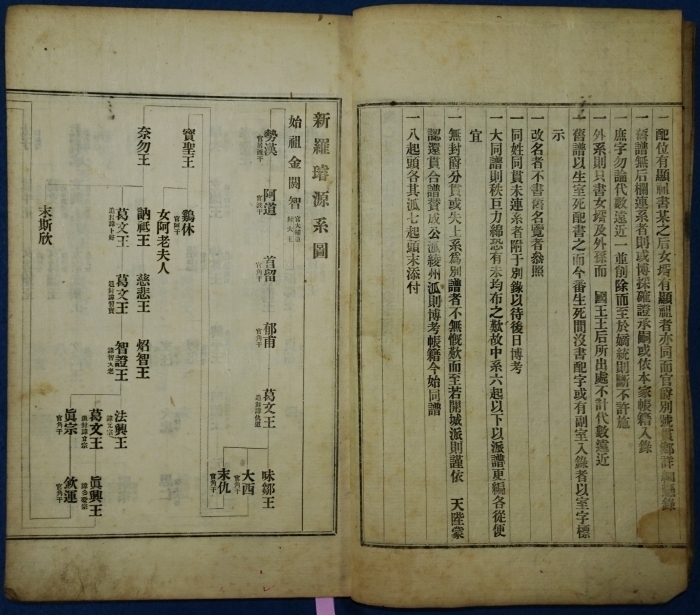 一配位有顯祖書某之后女壻有顯祖者亦同而官爵別號貫鄕詳細
一舊譜無后欄連系者則或博採確證承嗣或依本家帳籍入錄
一庶字勿論代數遠近一並削除而至於嫡統則斷不許施
一外系則只書女壻及外孫而 國王王后所出處不計代數遠近
一舊譜以生室死配書之而今番生死間沒書配字或有副室入錄者以室字標
示
一改名者不書舊名覽者叅照
一同姓同貫未連系者附于別錄以待後日博考
一大同譜則秩巨力綿恐有未均布之歎故中系六起以下以派譜更編各從便
宜
一無封爵分貫或失上系爲別譜者不無慨歎而至若開城派則謹依 天陛蒙
認還貫合譜贊成公派綾州派則博考帳籍今始同譜
一八起頭各其派七起頭末添付
新羅璿源系圖
始祖金閼智
勢漢
阿道
首留
郁甫
葛文王
味鄒王
大西
末仇
實聖王
鷄休
女阿老夫人
奈勿王
訥祗王
慈悲王
炤智王
葛文王
葛文王
智證王
法興王
葛文王
眞宗
眞興王
欽運
末斯欣